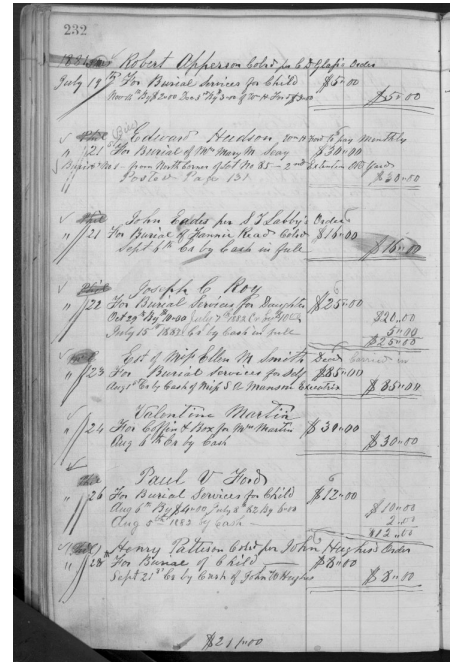 232
Robert Apperson Cold for E D Glass Order
July 19 For Burial Services for Child $5.00
$5.00
Edward Hudson to pay monthly
" 21 For Burial of Mrs Mary M. Seay $30.00
from North Corner of Lot No 85 - 2nd Extension Old Yard
Posted Page 131 $30.00
John Eades per S J Order
" 21 For Burial of Fannie Read Cold $16.00
Sept 6th Cr by Cash in full $16.00
Joseph C Roy
" 22 For Burial Services for Daughter $25.00
Oct 29th By 10.00 July 7th $20.00
5.00
July 15th 1882 Cr by Cash in full $25.00
Est of Miss Ellen M Smith Decd
" 23 For Burial Services for Self $85.00
Augt Cr by Cash of Miss S A Munson Executrix $85.00
Valentine Martin
" 24 For Coffin & Box for Wm Martin $30.00
Aug 6th Cr by Cash $30.00
Paul V Ford
" 26 For Burial Services for Child $12.00
Aug 6th By $4.00 July 6th 82 By 6.00 $10.00
Aug 5th 1883 by Cash 2.00
$12.00
Henry Patteson Cold for John Hughes Order
" 28th For Burial of Child $8.00
Sept 21st Cr by Cash of John W Hughes $8.00
$211.00